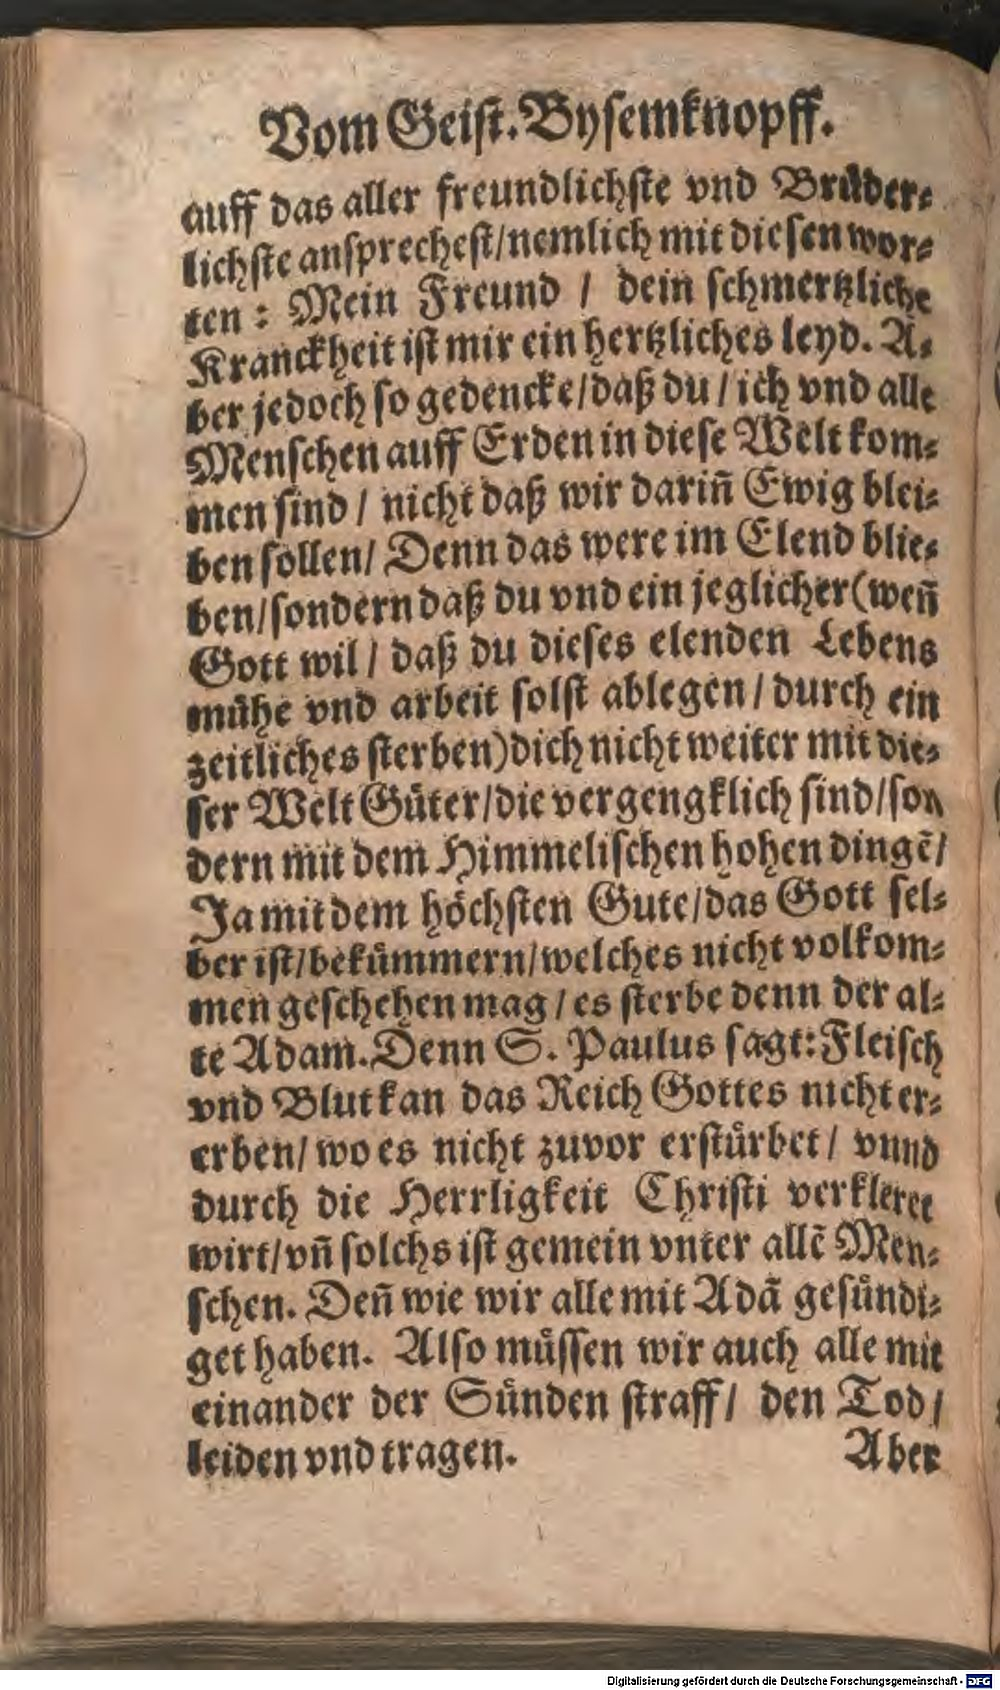 Vom Geist. Bysemknopff.
auff das aller freundlichste vnd Bruͤder⸗
lichste ansprechest/nemlich mit diesen wor⸗
ten: Mein Freund / dein schmertzliche
Kranckheit ist mir ein hertzliches leyd. A⸗
ber jedoch so gedencke/daß du / ich vnd alle
Menschen auff Erden in diese Welt kom⸗
men sind / nicht daß wir dariñ Ewig blei⸗
ben sollen/ Denn das were im Elend blie⸗
ben/sondern daß du vnd ein jeglicher(weñ
Gott wil / daß du dieses elenden Lebens
muͤhe vnd arbeit solst ablegen / durch ein
zeitliches sterben)dich nicht weiter mit die⸗
ser Welt Guͤter/die vergengklich sind/son
dern mit dem Himmelischen hohen dingẽ/
Ja mit dem hoͤchsten Gute/das Gott sel⸗
ber ist/bekuͤmmern/welches nicht volkom⸗
men geschehen mag / es sterbe denn der al⸗
te Adam. Denn S. Paulus sagt: Fleisch
vnd Blut kan das Reich Gottes nicht er⸗
erben/ wo es nicht zuvor erstuͤrbet / vnnd
durch die Herrligkeit Christi verkleret
wirt/vñ solchs ist gemein vnter allẽ Men⸗
schen. Deñ wie wir alle mit Adã gesuͤndi⸗
get haben. Also muͤssen wir auch alle mit
einander der Suͤnden straff/ den Tod/
leiden vnd tragen.
Aber
Digitalisierung gefördert durch die Deutsche Forschungsgemeinschaft - DFG